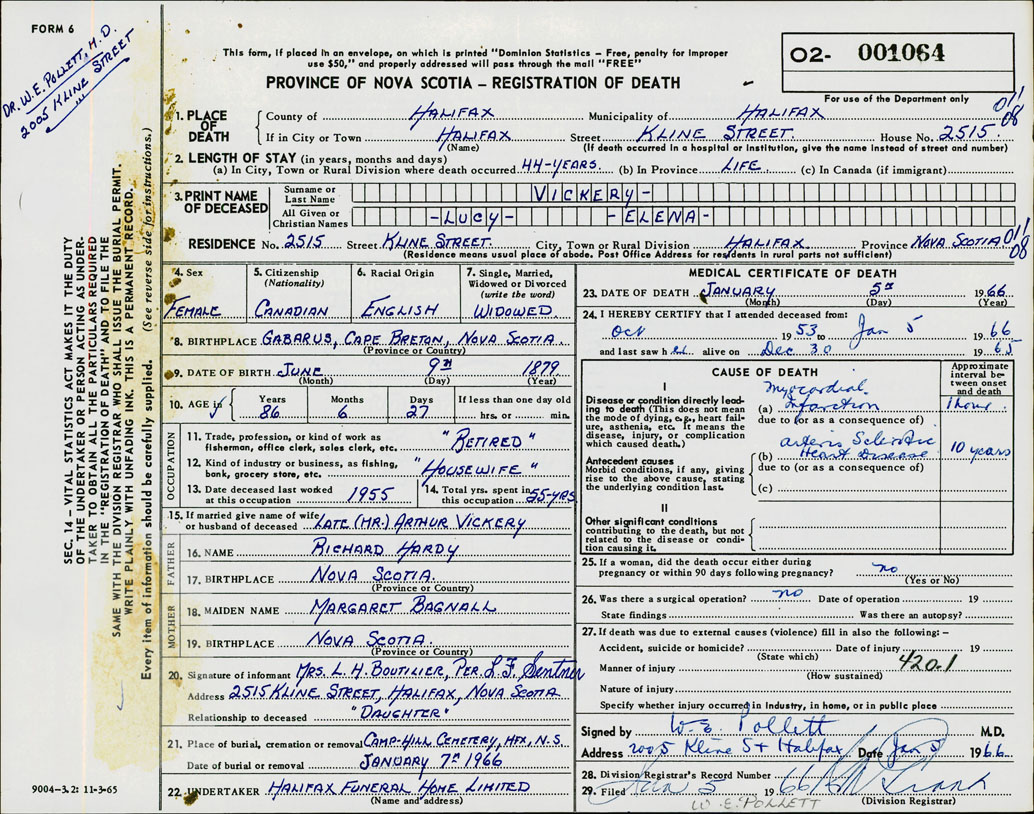 FORM 6
DR. W. E. POLLETT, M.D.
2005 KLINE STREET
This form, if placed in an envelope, on which is printed "Dominion Statistics – Free, penalty for improper
use $50," and properly addressed will pass through the mail "FREE"
O2- 001064
For use of the Department only
PROVINCE OF NOVA SCOTIA – REGISTRATION OF DEATH
SEC. 14 – VITAL STATISTICS ACT MAKES IT THE DUTY
OF THE UNDERTAKER OR PERSON ACTING AS UNDER-
TAKER TO OBTAIN ALL THE PARTICULARS REQUIRED
IN THE "REGISTRATION OF DEATH" AND TO FILE THE
SAME WITH THE DIVISION REGISTRAR WHO SHALL ISSUE THE BURIAL PERMIT.
WRITE PLAINLY WITH UNFADING INK. THIS IS A PERMANENT RECORD.
Every item of information should be carefully supplied. (See reverse side for instructions.)
1. PLACE OF DEATH
County of HALIFAX Municipality of HALIFAX
011
08
If in City or Town HALIFAX Street KLINE STREET. House No. 2515.
(Name) (If death occurred in a hospital or institution, give the name instead of street and number)
2. LENGTH OF STAY (in years, months and days)
(a) In City, Town or Rural Division where death occurred 44-YEARS. (b) In Province LIFE. (c) In Canada (if immigrant)
3. PRINT NAME OF DECEASED
Surname or Last Name VICKERY-
All Given or Christian Names -LUCY- -ELENA-
RESIDENCE No. 2515 Street KLINE STREET. City, Town or Rural Division HALIFAX. Province NOVA SCOTIA
011
08
(Residence means usual place of abode. Post Office Address for residents in rural parts not sufficient)
4. Sex
FEMALE
5. Citizenship
(Nationality)
CANADIAN
6. Racial Origin
ENGLISH
7. Single, Married,
Widowed or Divorced
(write the word)
WIDOWED
8. BIRTHPLACE GABARUS, CAPE BRETON, NOVA SCOTIA.
(Province or Country)
9. DATE OF BIRTH JUNE 9TH 1879
(Month) (Day) (Year)
10. AGE Years Months Days If less than one day old
86 6 27 hrs. or min.
OCCUPATION
11. Trade, profession, or kind of work as
fisherman, office clerk, sales clerk, etc. "RETIRED"
12. Kind of industry or business, as fishing,
bank, grocery store, etc. "HOUSEWIFE"
13. Date deceased last worked
at this occupation 1955
14. Total yrs. spent in
this occupation 55-YRS
15. If married give name of wife
or husband of deceased LATE (MR.) ARTHUR VICKERY
FATHER
16. NAME RICHARD HARDY
17. BIRTHPLACE NOVA SCOTIA.
(Province or Country)
MOTHER
18. MAIDEN NAME MARGARET BAGNALL
19. BIRTHPLACE NOVA SCOTIA.
(Province or Country)
20. Signature of informant MRS. L. H. BOUTILIER, PER. L. F. Sentner
Address 2515 KLINE STREET, HALIFAX, NOVA SCOTIA
Relationship to deceased "DAUGHTER"
21. Place of burial, cremation or removal CAMP-HILL CEMETERY, HFX, N.S.
Date of burial or removal JANUARY 7TH 1966
22. UNDERTAKER HALIFAX FUNERAL HOME LIMITED
(Name and address)
9004-3.2: 11-3-65
MEDICAL CERTIFICATE OF DEATH
23. DATE OF DEATH JANUARY 5TH 1966
(Month) (Day) (Year)
24. I HEREBY CERTIFY that I attended deceased from:
Oct 1953 to Jan 5 1966
and last saw h er alive on Dec 30 1965
CAUSE OF DEATH
Approximate
interval be-
tween onset
and death
I
Disease or condition directly lead-
ing to death (This does not mean
the mode of dying, e.g., heart fail-
ure, asthenia, etc. It means the
disease, injury, or complication
which caused death.)
Myocardial
(a) infarction 1 hour.
due to (or as a consequence of)
Antecedent causes
Morbid conditions, if any, giving
rise to the above cause, stating
the underlying condition last.
arterio Sclerotic
(b) Heart Disease 10 years
due to (or as a consequence of)
(c)
II
Other significant conditions
contributing to the death, but not
related to the disease or condi-
tion causing it.
25. If a woman, did the death occur either during
pregnancy or within 90 days following pregnancy? no
(Yes or No)
26. Was there a surgical operation? no Date of operation 19
State findings Was there an autopsy?
27. If death was due to external causes (violence) fill in also the following: –
Accident, suicide or homicide? Date of injury 19
(State which)
Manner of injury 420.1
(How sustained)
Nature of injury
Specify whether injury occurred in industry, in home, or in public place
Signed by W. E. Pollett M.D.
Address 2005 Kline St Halifax Date Jan 5 1966.
28. Division Registrar's Record Number
29. Filed Jan 5 1966
(Division Registrar)
W. E. POLLETT